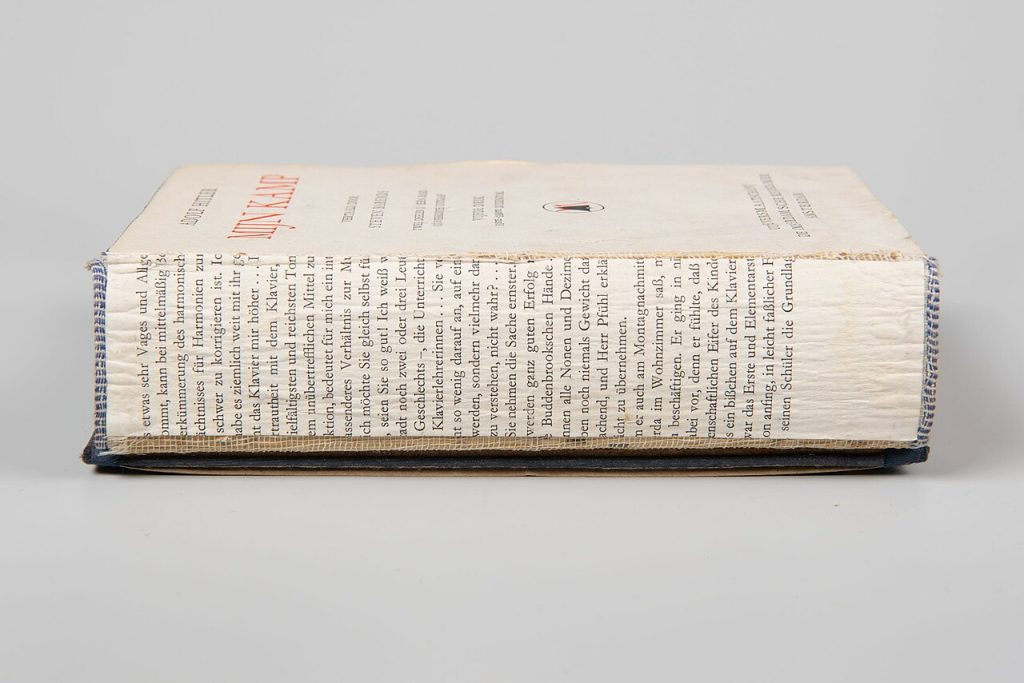 ADOLF HITLER
MIJN KAMP
VERTAALD DOOR
STEVEN BARENDS
VIJFDE DRUK
DE AMSTERDAMSCHE KEURKAMER
AMSTERDAM
s etwas sehr Vages und Allge
ommt, kann bei mittelmäßig
erkümmerung des harmonisch
üchtnisses für Harmonien zur
schwer zu korrigieren ist. Ic
abe es ziemlich weit mit ihr
t das Klavier mir höher... I
ertrautheit mit dem Klavier,
ielfältigsten und reichsten Ton
em unübertrefflichen Mittel zu
ktion, bedeutet für mich ein int
ussenderes Verhältnis zur Mu
ch möchte Sie gleich selbst fü
, seien Sie so gut! Ich weiß w
adt noch zwei oder drei Leu
Geschlechts –, die Unterricht
Klavierlehrerinnen... Sie v
nt so wenig darauf an, auf ein
werden, sondern vielmehr dar
zu verstehen, nicht wahr?...
Sie nehmen die Sache ernster.
werden ganz guten Erfolg
e Buddenbrookschen Hände.
nnen alle Nonen und Dezime
en noch niemals Gewicht da
achend, und Herr Pfühl erklä
icht zu übernehmen.
n er auch am Montagnachmitt
rda im Wohnzimmer saß, n
u beschäftigen. Er ging in ni
abei vor, denn er fühlte, daß
enschaftlichen Eifer des Kinde
s ein bißchen auf dem Klavier
war das Erste und Elementarst
on anfing, in leicht faßlicher F
seinen Schüler die Grundlag